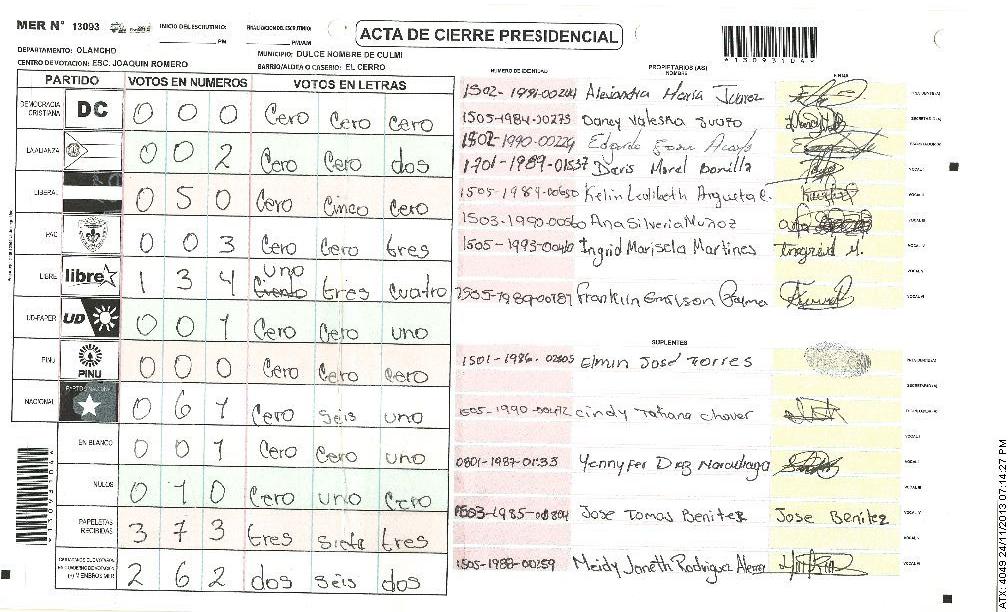 MER N° 13093
INICIO DEL ESCRUTINIO: PM
FINALIZACION DEL ESCRUTINIO: PM/AM
ACTA DE CIERRE PRESIDENCIAL
*13093104*
DEPARTAMENTO: OLANCHO
MUNICIPIO: DULCE NOMBRE DE CULMI
CENTRO DE VOTACION: ESC. JOAQUIN ROMERO
BARRIO/ALDEA O CASERIO: EL CERRO
PARTIDO VOTOS EN NUMEROS VOTOS EN LETRAS
DEMOCRACIA CRISTIANA DC 0 0 0 Cero Cero Cero
LA ALIANZA 0 0 2 Cero Cero dos
LIBERAL 0 5 0 Cero Cinco Cero
PAC 0 0 3 Cero Cero tres
LIBRE libre 1 3 4 uno Ciento tres cuatro
UD-FAPER UD 0 0 1 Cero Cero uno
PINU PINU 0 0 0 Cero Cero Cero
NACIONAL PARTIDO NACIONAL 0 6 1 Cero seis uno
EN BLANCO 0 0 1 Cero Cero uno
NULOS 0 1 0 Cero uno Cero
PAPELETAS RECIBIDAS 3 7 3 tres siete tres
(+) MIEMBROS MER 2 6 2 dos seis dos
NUMERO DE IDENTIDAD PROPIETARIOS (AS) NOMBRE FIRMA
Alejandra María Juarez
1505-1984-00275 Dancy Valeska
1502-1990-00224 Edgardo
1701-1989-01537 Daris Morel Bonilla
1505-1989-00650 Kelin
1503-1990-00360 Ana Silveria Muñoz
1505-1993-00460 Ingrid Marisela Martines Ingrid M.
1505-1980-00787 Franklin
SUPLENTES
1501-1986-02605 Elmin José Torres
1505-1990-00472 Cindy Tatiana Chaver
0801-1987-01133 Yennyfer
1503-1985-00804 Jose Tomas Benitez Jose Benitez
1505-1988-00259 Meidy Janeth Rodriguez
ATX: 4049 24/11/2013 07:14:27 PM